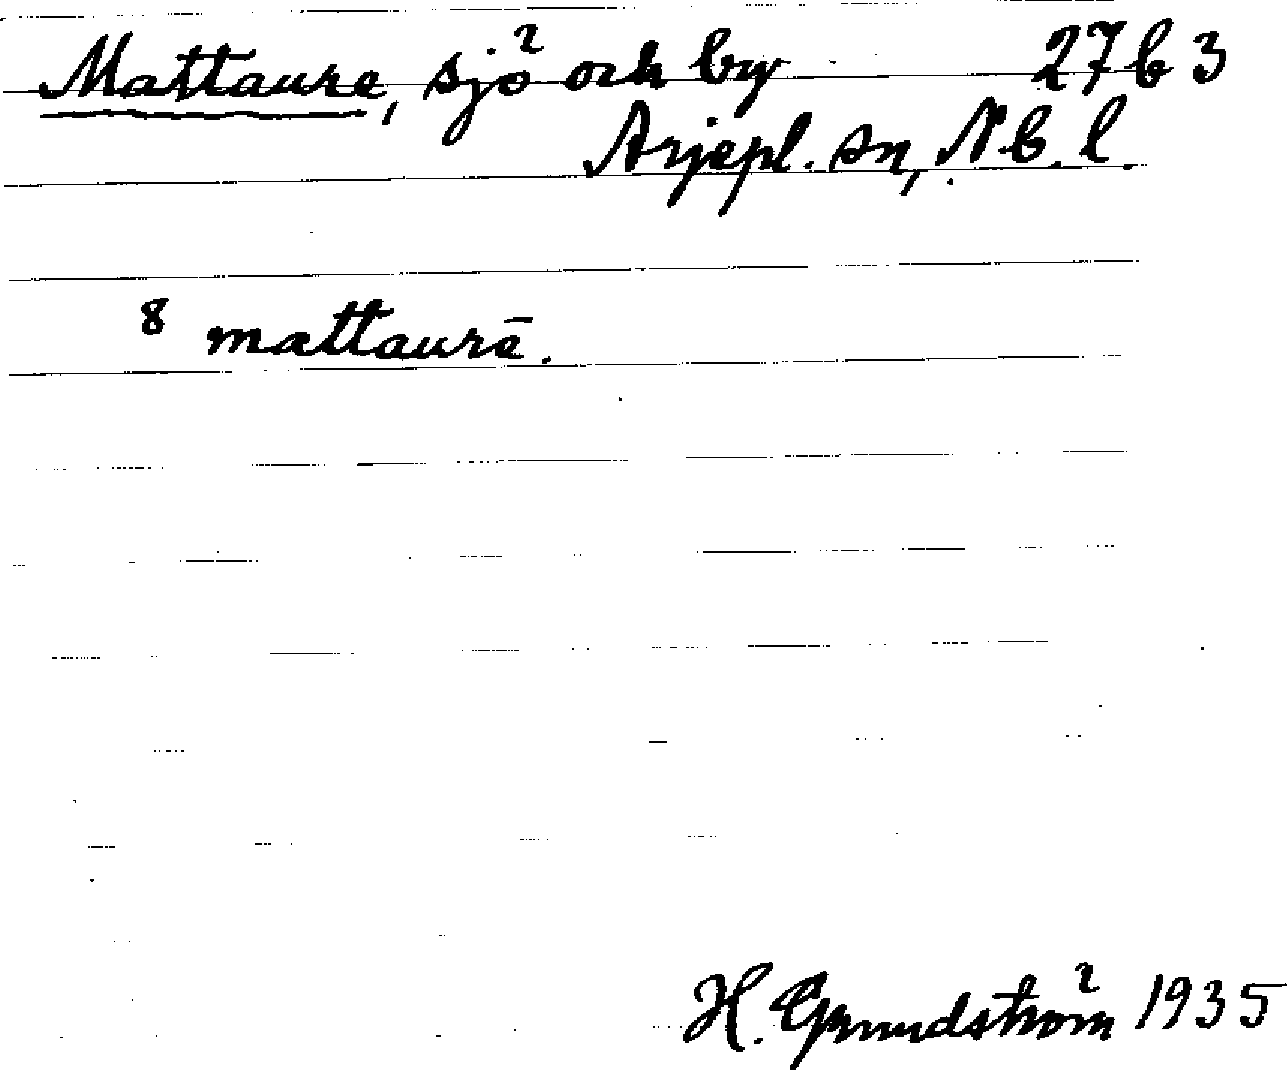 Mattaure, sjö och by 27 b 3
Arjepl. sn, Nb. l.
8 mattaurē.
H. Grundström 1935